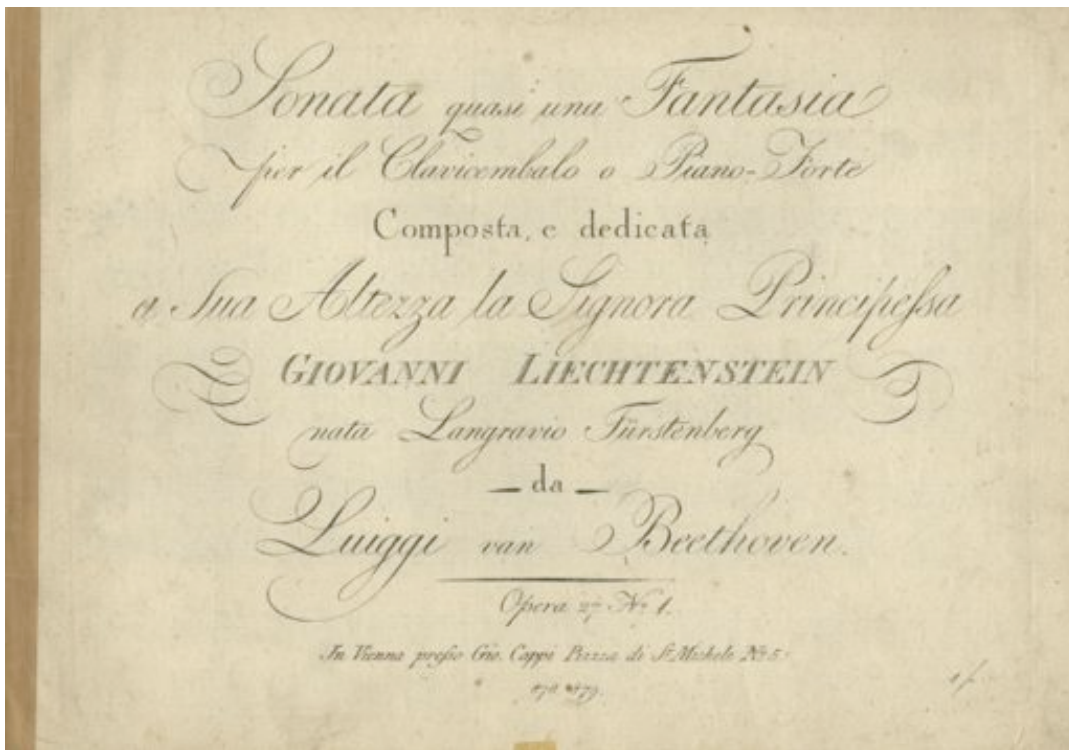 Sonata quasi una Fantasia
per il Clavicembalo o Piano-Forte
Composta, e dedicata
a Sua Altezza la Signora Principeſsa
GIOVANNI LIECHTENSTEIN
nata Langravio Fürstenberg
— da —
Luiggi van Beethoven.
Opera 27 No 1.
In Vienna preſso Gio. Cappi Piazza di St Michele No 5.